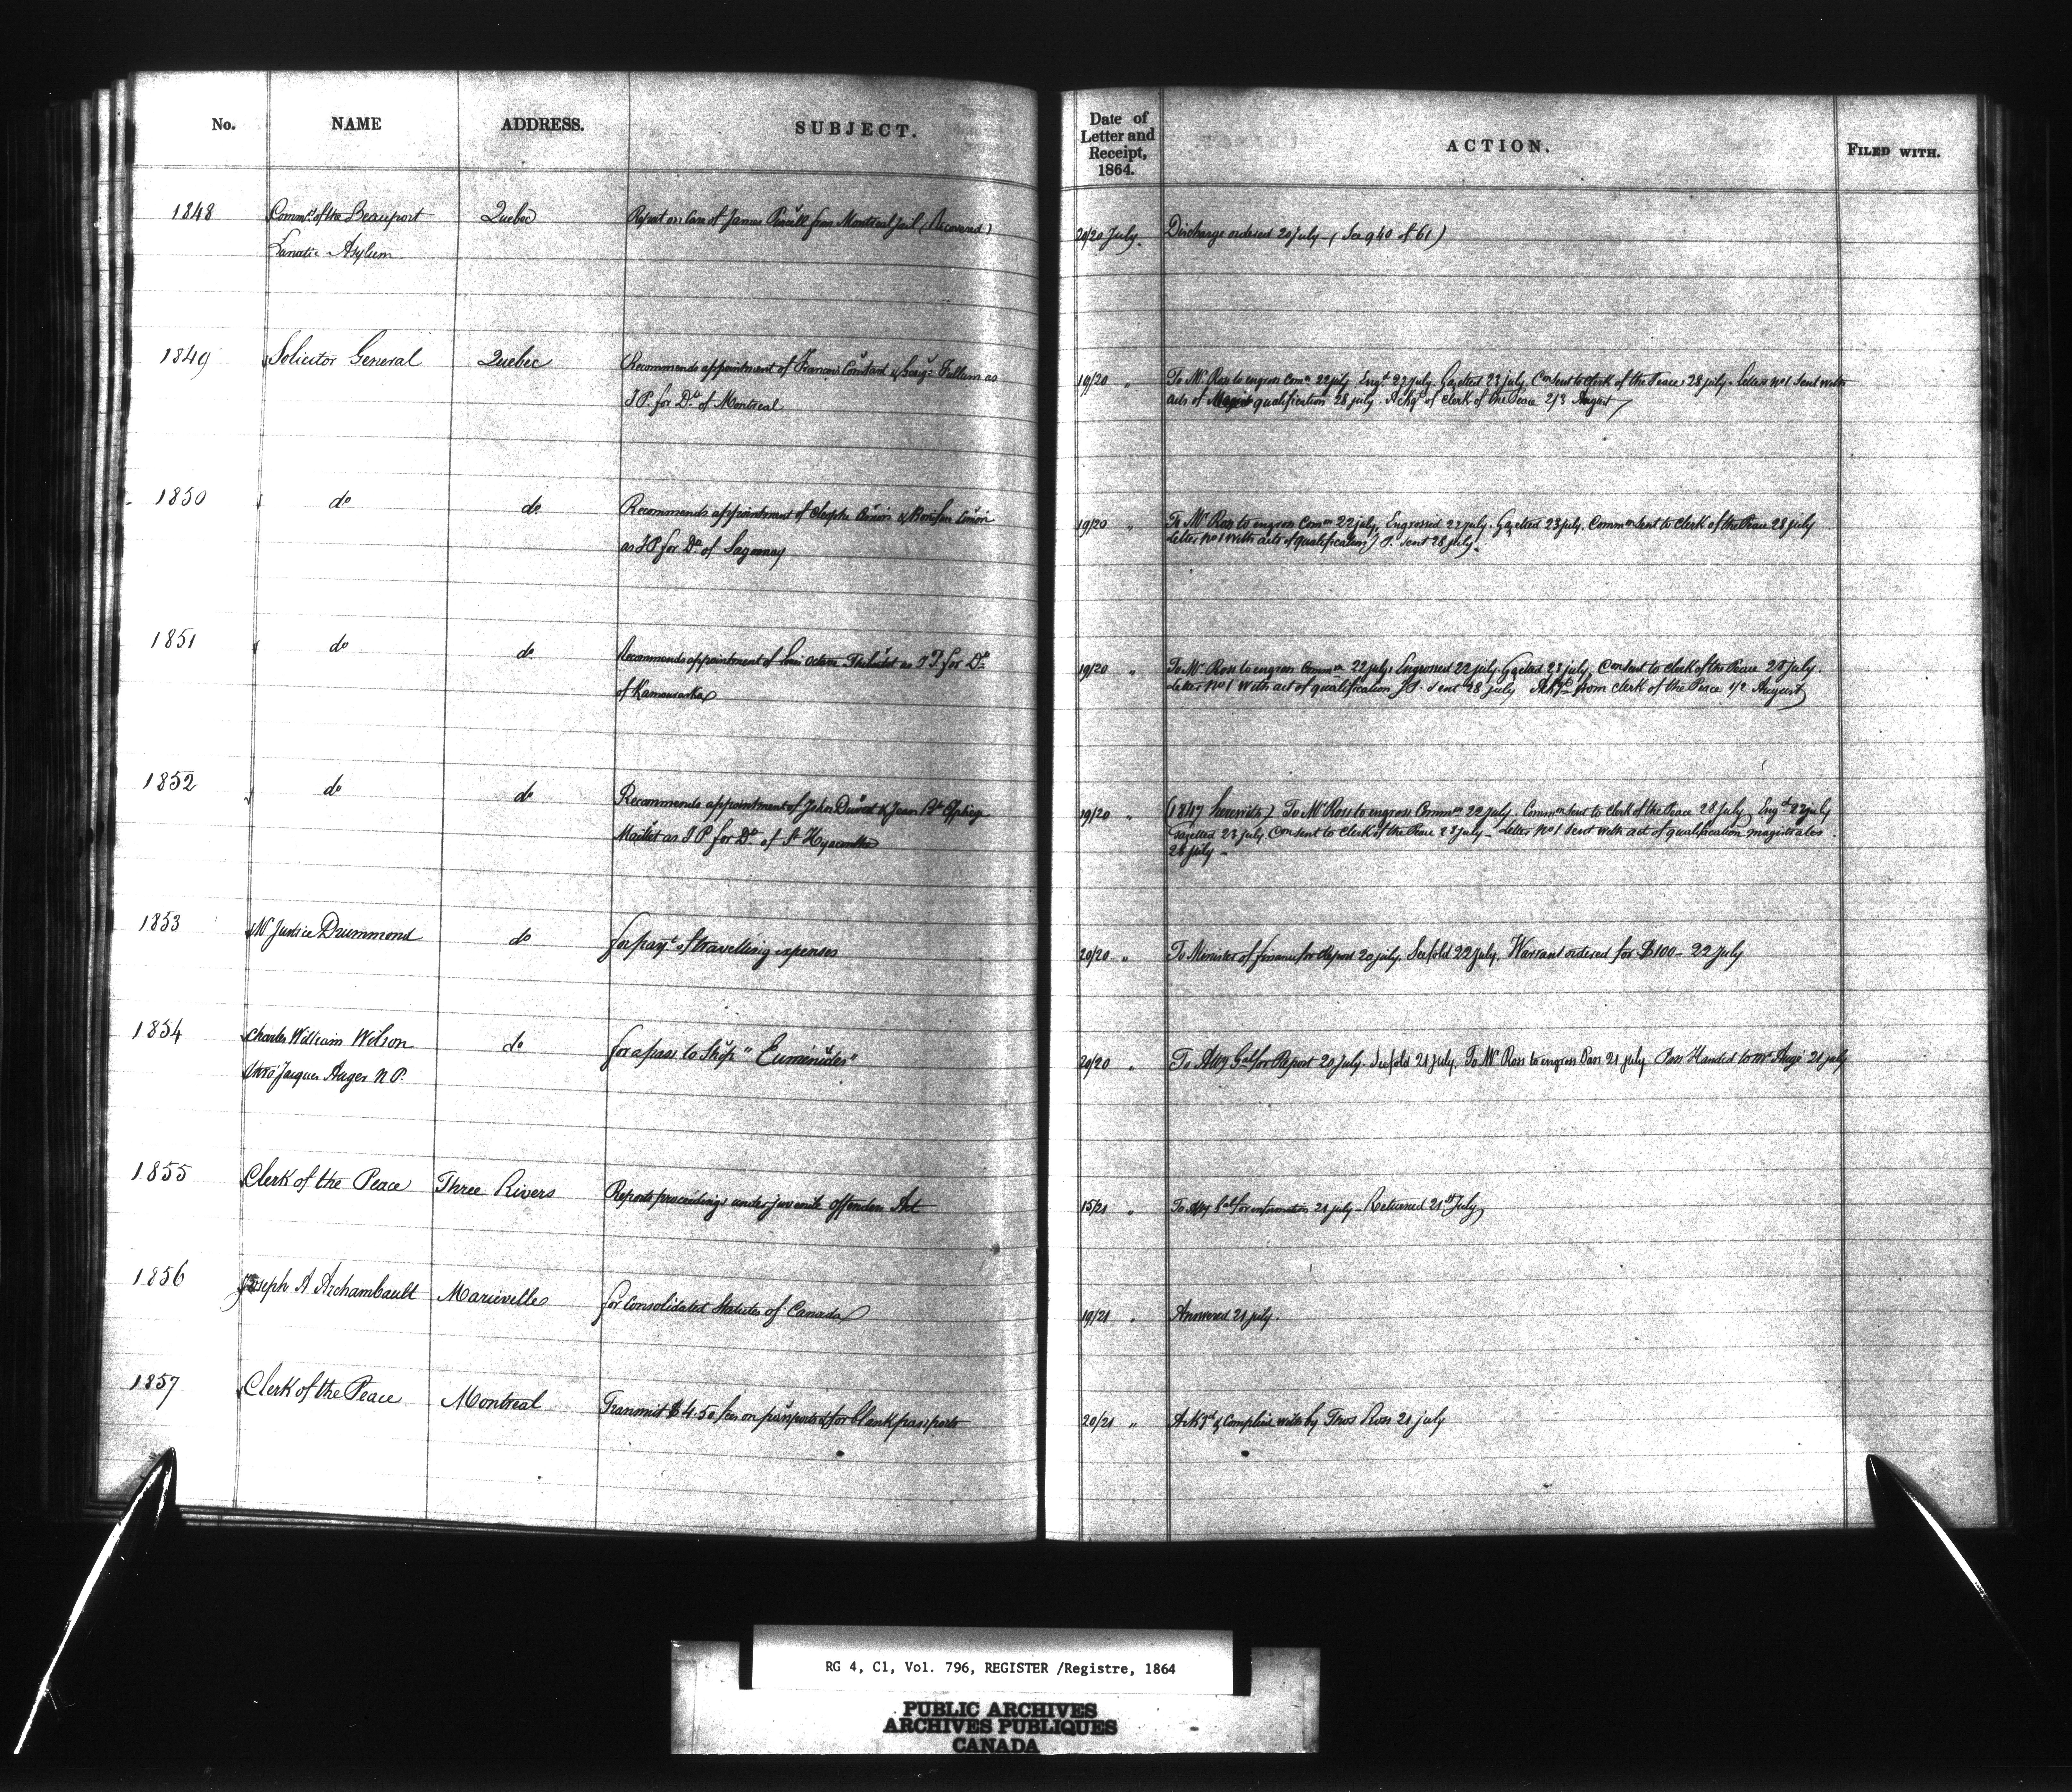 No. NAME ADDRESS. SUBJECT.
Date of Letter and Receipt, 1864. ACTION. FILED WITH.
1848 Commrs of the Beauport Quebec Report on Case of James from Montreal Jail (Recovered)
Lunatic Asylum
20/20 July. Discharge ordered 20 July - (See 940 of 61)
1849 Solicitor General Quebec Recommends appointment of & Fullum as
J P. for Dt. of Montreal
19/20 " To Mr Ross to engross Comn 22 july Engd 22 july. Gazetted 23 july. Con sent to Clerk of the Peace 28 july. Letter no 1 sent with
acts of qualification 28 july. Ackgt of Clerk of the Peace 2/3 August
1850 do do Recommends appointment of &
as J P for Dt of Saguenay
19/20 " To Mr Ross to engross Comn 22 july, Engrossed 22 july. Gazetted 23 july, Commn sent to Clerk of the Peace 28 july
Letter no 1 with acts of qualification J P. sent 28 july.
1851 do do Recommends appointment of Louis Octave as J P for Dt
of Kamouraska
19/20 " To Mr Ross to engross Commn 22 july. Engrossed 22 july. Gazetted 23 july, Con sent to Clerk of the Peace 28 july.
Letter no 1 with act of qualification J P. sent 28 july from Clerk of the Peace 1/2 August
1852 do do Recommends appointment of John & Jean Bte
as J P for Dt. of St Hyacinthe
19/20 " (1847 herewith) To Mr Ross to engross Commn 22 july. Commn sent to Clerk of the Peace 28 july Engd 22 july
Gazetted 23 july Con sent to Clerk of the Peace 28 july - Letter no 1 sent with act of qualification magistrates
28 july -
1853 Mr Justice Drummond do for payt of travelling expenses
20/20 " To Minister of finance for Report 20 july. See fold 22 july. Warrant ordered for $100 - 22 July
1854 Charles William Wilson do for a pass to Ship "Eumenides"
Jacques Auger N. P.
20/20 " To Atty Gal for Report 20 july. See fold 21 july. To Mr Ross to engross Pass 21 july Pass Handed to Mr Augé 21 july
1855 Clerk of the Peace Three Rivers Reports proceedings under juvenile Offenders Act
15/21 " To Atty Gal for information 21 july - Returned 21st July
1856 Joseph A Archambault Marieville for Consolidated Statutes of Canada
19/21 " Answered 21 july.
1857 Clerk of the Peace Montreal Transmit $4.50 fees on passports & for blank passports
20/21 " Ackgd & Complied with by Thos Ross 21 july
RG 4, C1, Vol. 796, REGISTER /Registre, 1864
PUBLIC ARCHIVES
ARCHIVES PUBLIQUES
CANADA